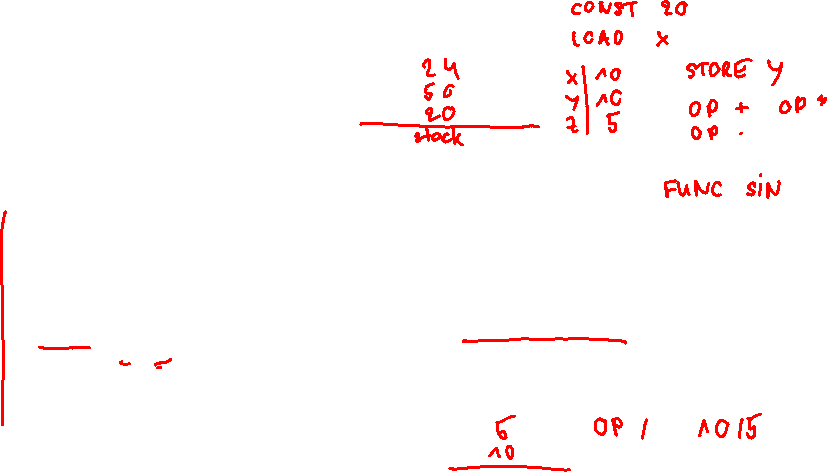 CONST 20
LOAD X
24
50
20
stack
X | 10
Y | 10
Z | 5
STORE Y
OP + OP *
OP -
FUNC SIN
5
10
OP / 10/5